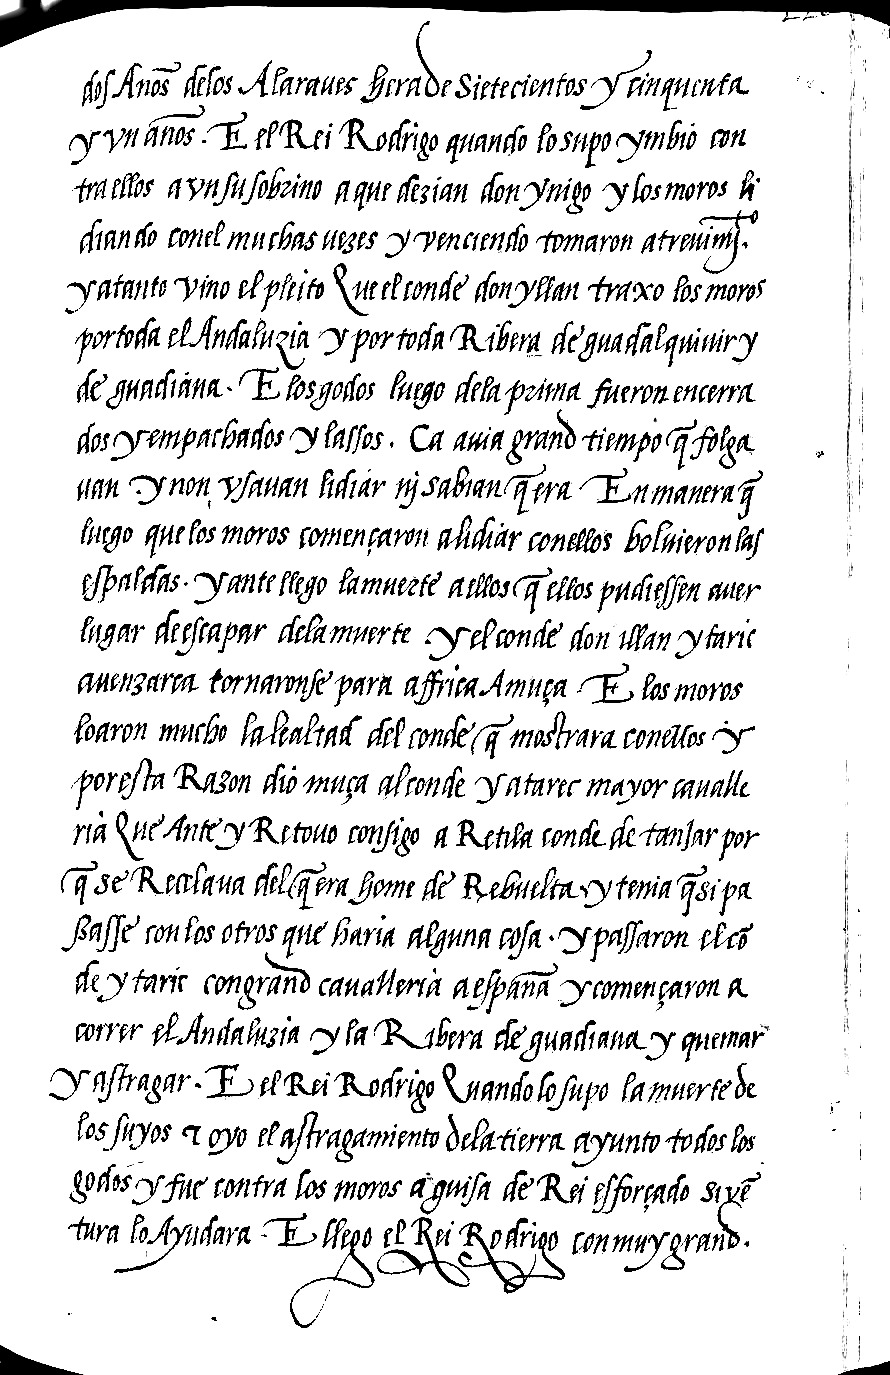 dos Anõs delos Alaraues hera de Sietecientos y cinquenta
y vn años. E el Rei Rodrigo quando lo supo ymbio con
tra ellos a vn su sobrino a que dezian don ynigo y los moros li
diando con el muchas uezes y venciendo tomaron atreuimj̃to.
y atanto vino el pleito Que el conde don yllan traxo los moros
por toda el Andaluzia y por toda Ribera de guadalquiuir y
de guadiana. E los godos luego dela prima fueron encerra
dos y empachados y lassos. Ca auia grand tiempo q̃ folga
uan y non vsauan lidiar nj sabian q̃ era En manera q̃
luego que los moros començaron a lidiar con ellos boluieron las
espaldas. y ante llego la muerte a ellos q̃ ellos pudiessen auer
lugar de escapar dela muerte y el conde don illan y taric
auenzarca tornaronse para affrica A muça E los moros
loaron mucho la lealtad del conde q̃ mostrara con ellos y
por esta Razon dio muça al conde y a tarec mayor caualle
ria Que Ante y Retouo consigo a Retila conde de tanjar por
q̃ se Recelaua del q̃ era home de Rebuelta y tenia q̃ si pa
sasse con los otros que haria alguna cosa. y passaron el cõ
de y taric con grand caualleria a españa y començaron a
correr el Andaluzia y la Ribera de guadiana y quemar
y astragar. E el Rei Rodrigo Quando lo supo la muerte de
los suyos ⁊ oyo el astragamiento dela tierra ayunto todos los
godos y fue contra los moros a guisa de Rei esforçado si vẽ
tura lo Ayudara. E llego el Rei Rodrigo con muy grand.